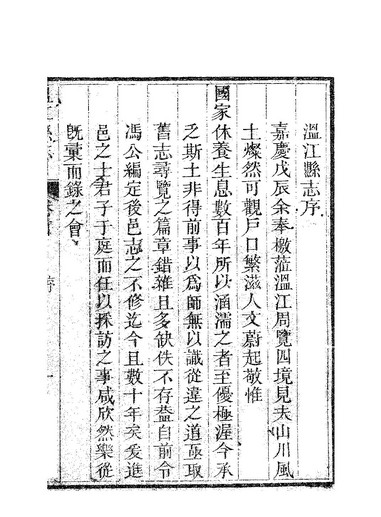 溫江縣志序
嘉慶戊辰余奉檄蒞溫江周覽四境見夫山川風
土燦然可觀戶口繁滋人文蔚起敬惟
國家休養生息數百年所以涵濡之者至優極渥今承
乏斯土非得前事以為師無以識從違之道亟取
舊志尋覽之篇章錯雜且多缺佚不存蓋自前令
馮公編定後邑志之不修迄今且數十年矣爰進
邑之士君子于庭而任以採訪之事咸欣然樂從
旣彙而錄之會
序
一